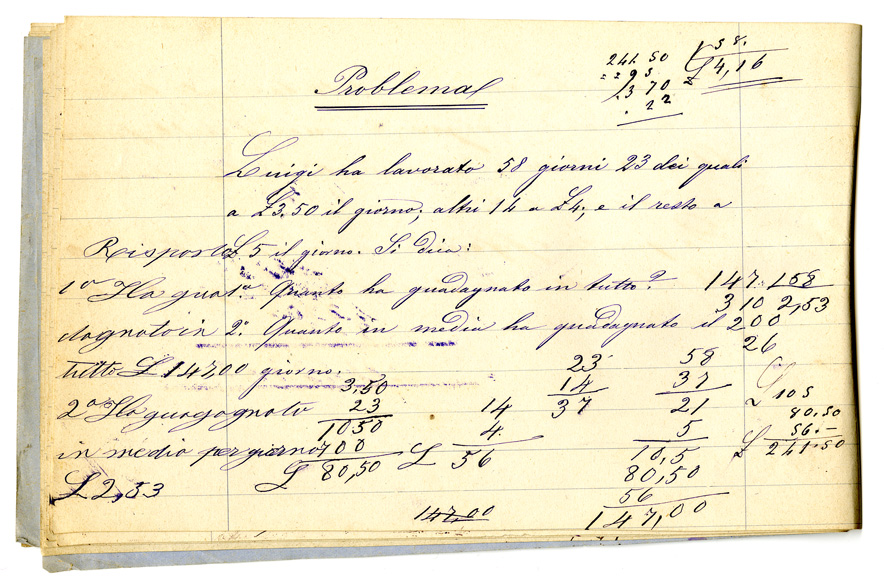 Problema
241.50
293.
370
22
58.
£ 4,16
Luigi ha lavorato 58 giorni 23 dei quali
a £3.50 il giorno; altri 14 a £4; e il resto a
£ 5 il giorno. Si dica:
1° Quanto ha guadagnato in tutto?
2° Quanto in media ha guadagnato il
giorno.
Risposta
1a Ha gua
dagnato in
tutto £ 147,00
2a Ha guagagnato
in media per giorno
£ 2,53
147. 58
310 2,53
200
26
3,50
23
1050
700
£ 80,50
14
4.
£ 56
23
14
37
58
37
21
5
10,5
80,50
56
147,00
147,00
£ 105
80,50
56.-
£ 241.50